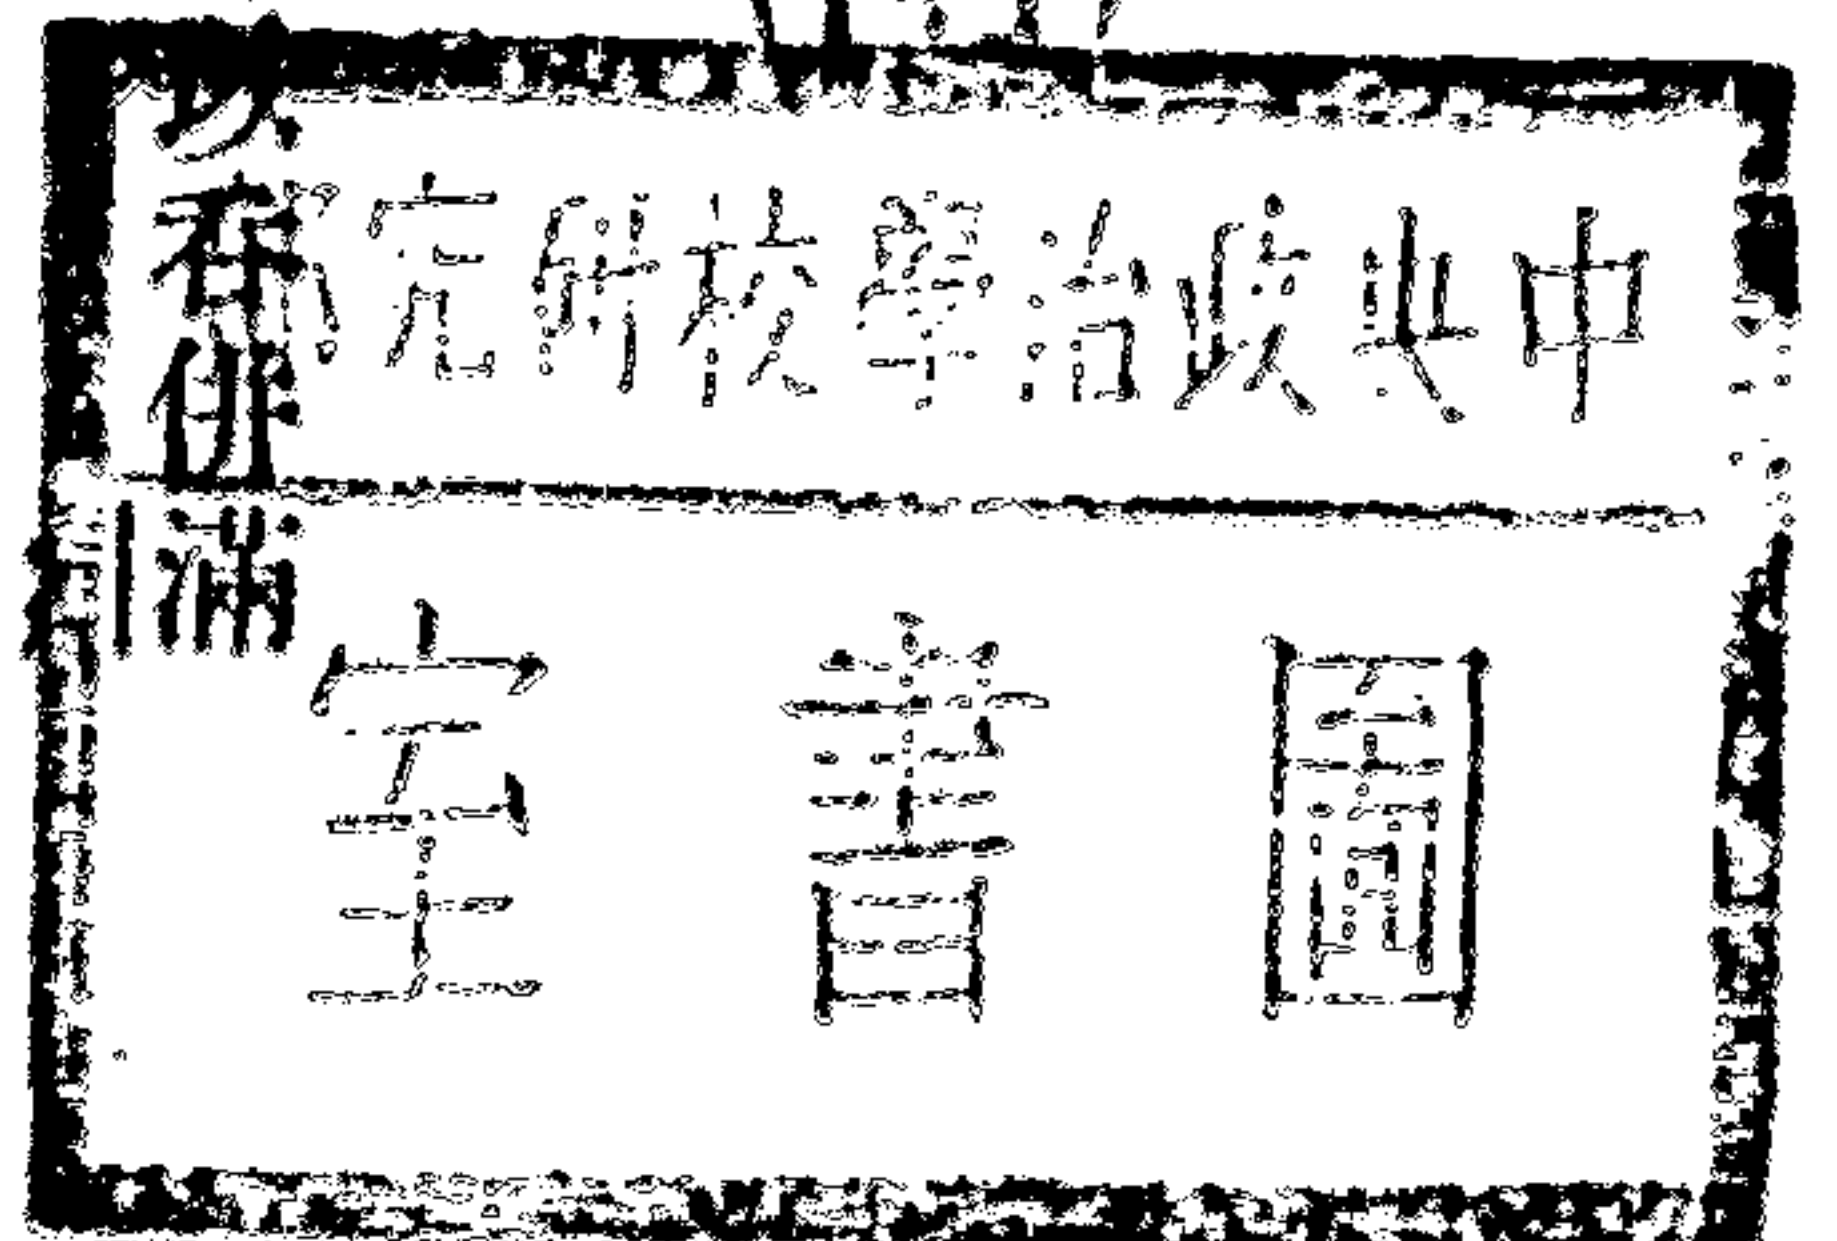 中央政治學校研究部
圖書室
吞併滿